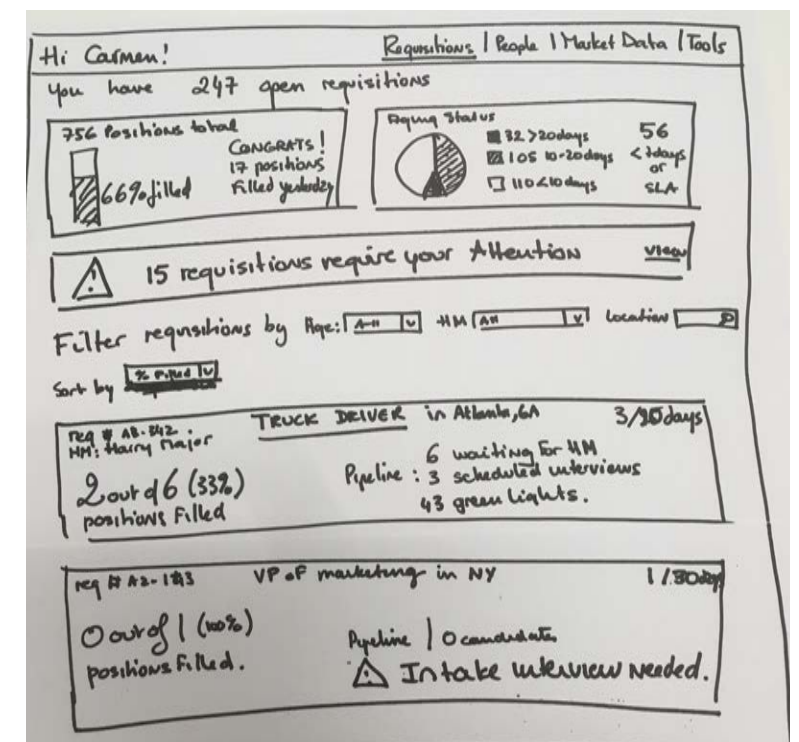 Hi Carmen!
Requisitions | People | Market Data | Tools
You have 247 open requisitions
756 Positions total
66% filled
CONGRATS!
17 positions
Filled yesterday
Aging Status
32 >20days
105 10-20days
110 <10days
56
<7days
or
SLA
15 requisitions require your Attention
view
Filter requisitions by Age: All HM All Location
Sort by % Filled
req # AB-342
HM: Harry Major
TRUCK DRIVER in Atlanta, GA
days
2 out of 6 (33%)
positions Filled
6 waiting for HM
Pipeline : 3 scheduled interviews
43 green lights.
req #
VP of marketing in NY
1/30days
0 out of 1 (100%)
positions Filled.
Pipeline | 0 candidates
Intake interview Needed.